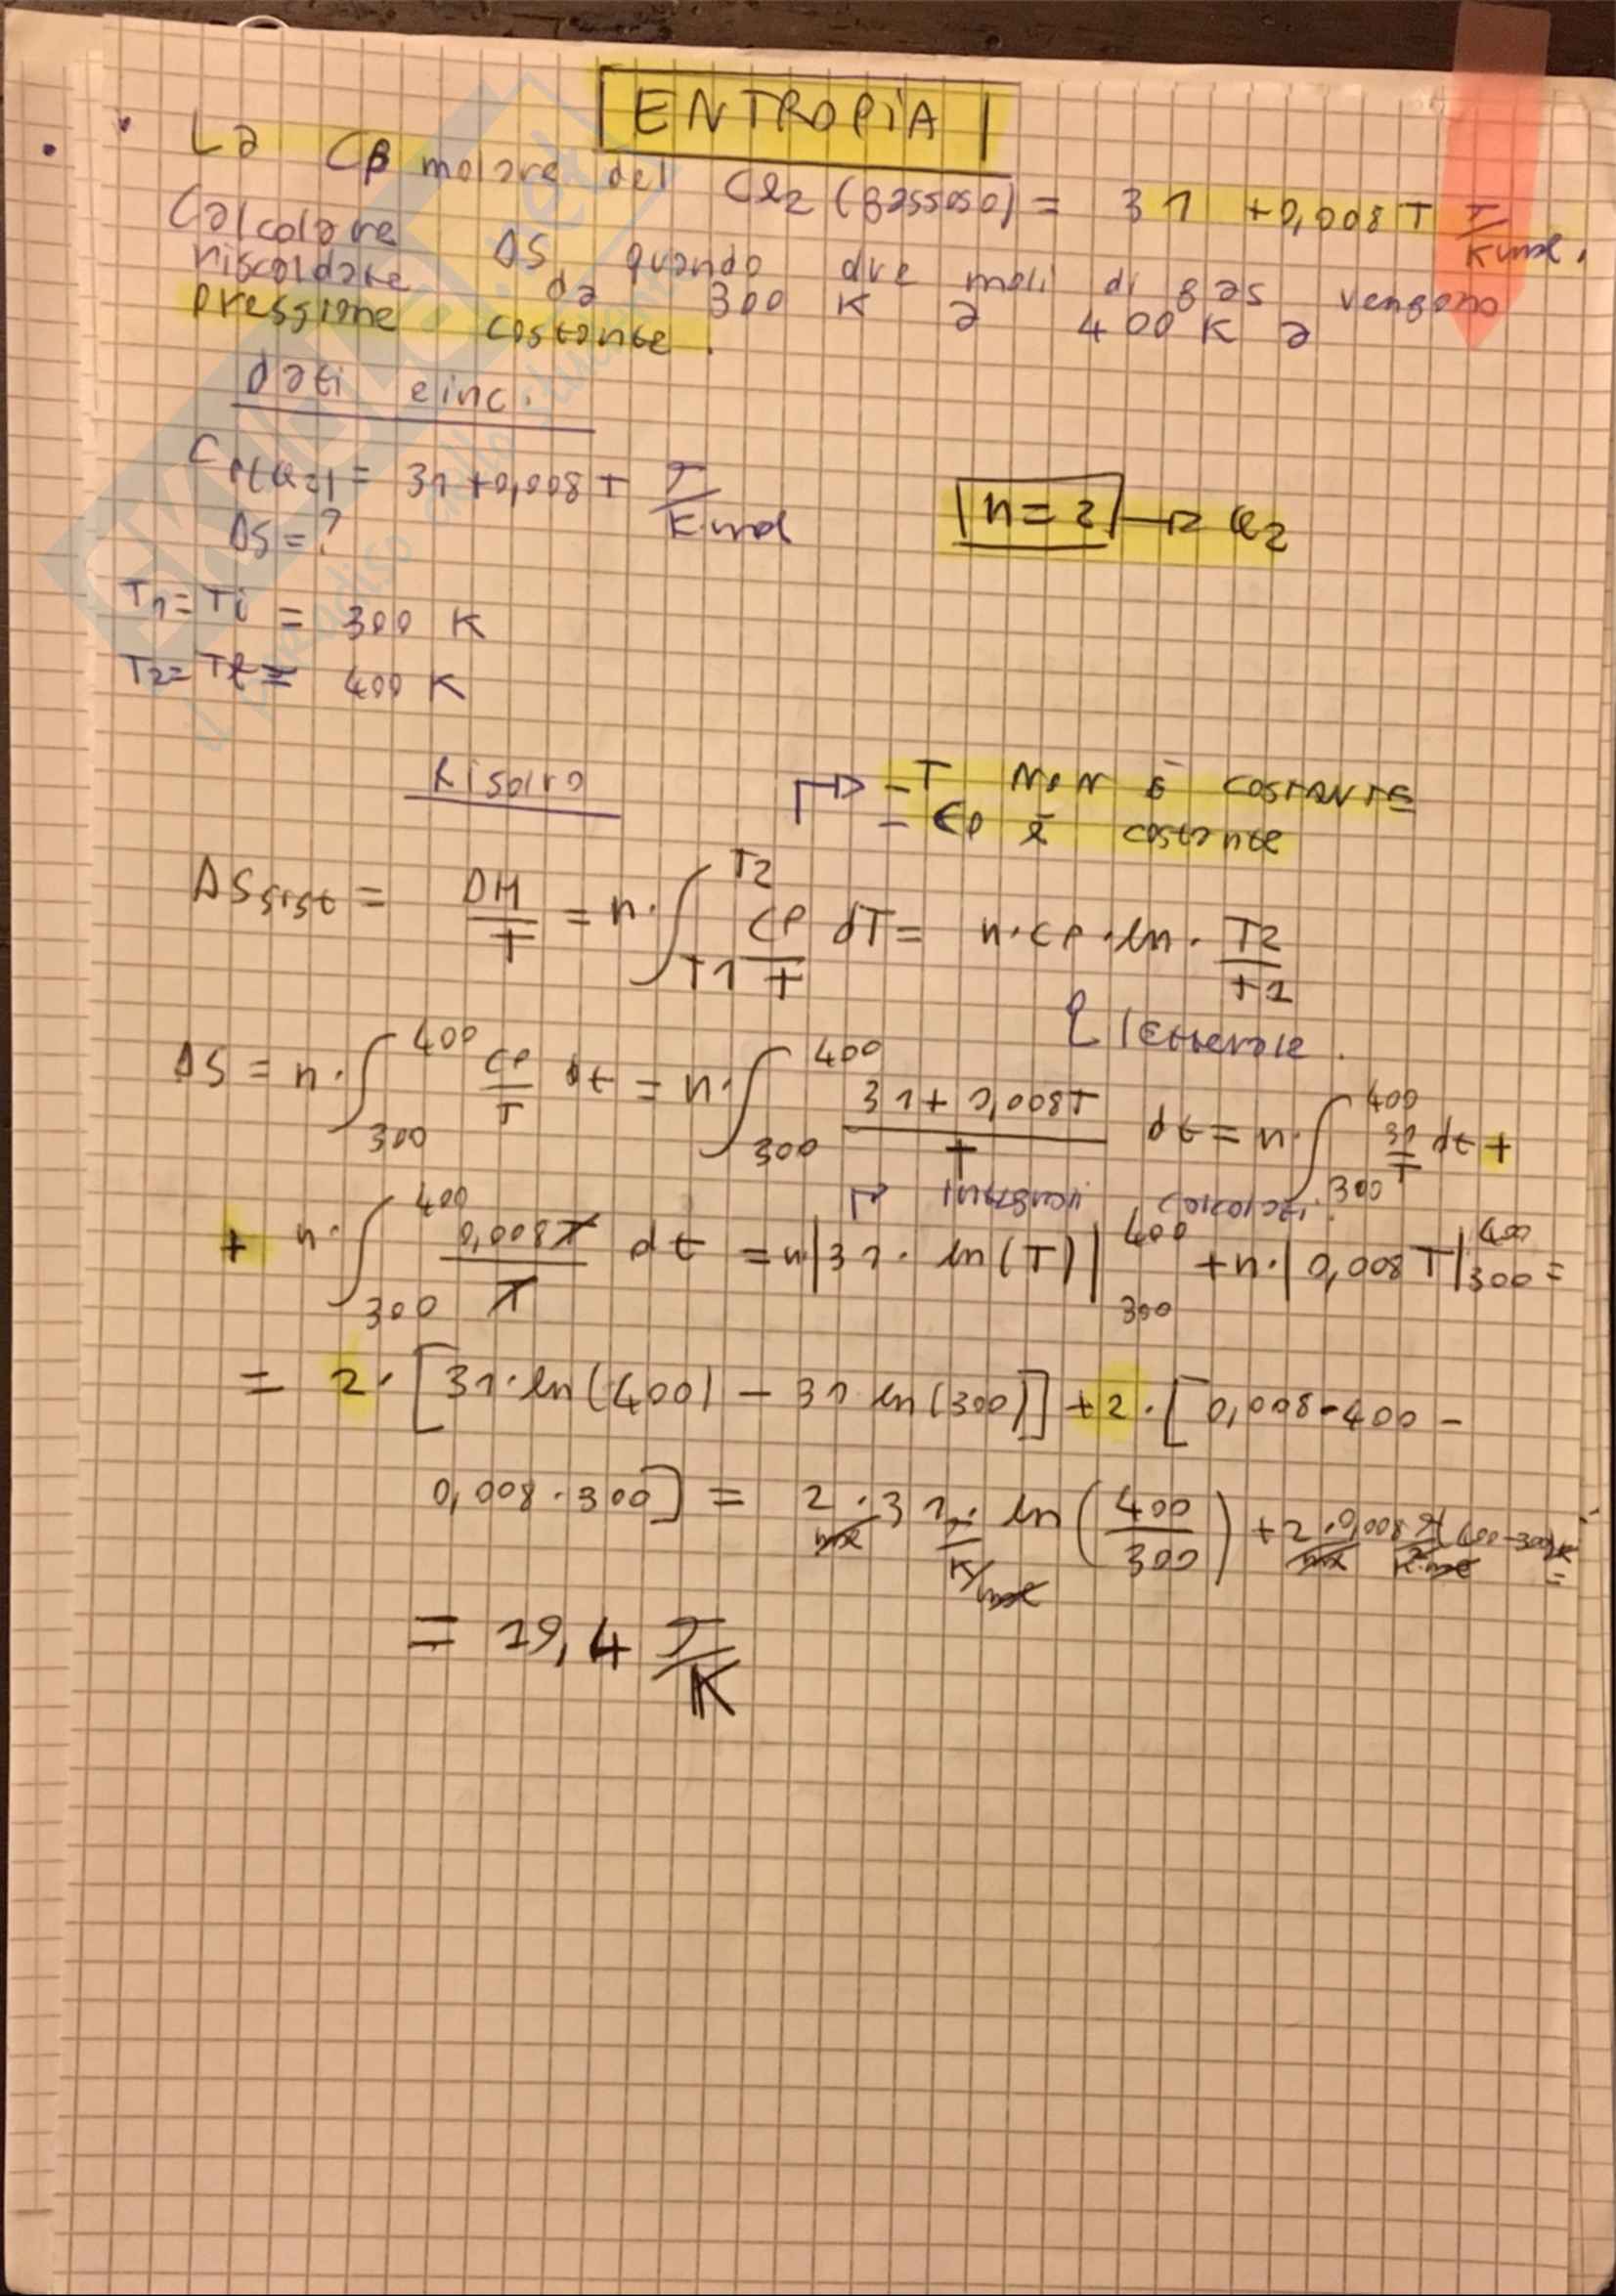 ENTROPIA
La Cp molare del Cl2 (gassoso) = 31 + 0,008 T J/K mol.
Calcolare ΔS quando due moli di gas vengono
riscaldate da 300 K a 400 K a
pressione costante.
dati e inc.
Cp(Cl2) = 31 + 0,008 T J/K·mol
n = 2 → Cl2
ΔS = ?
T1 = Ti = 300 K
T2 = Tf = 400 K
Risolvo
- T NON È COSTANTE
- Cp è costante
ΔSsist = ΔH/T = n · ∫T1 T2 CP/T dT = n · CP · ln · T2/T1
letterale.
ΔS = n · ∫300 400 CP/T dt = n · ∫300 400 31 + 0,008T/T dt = n · ∫300 400 31/T dt +
+ n · ∫300 400 0,008T/T dt = n |31 · ln(T)| 400 300 + n · |0,008 T| 400 300 =
= 2 · [31 · ln(400) - 31 ln(300)] + 2 · [0,008 · 400 -
0,008 · 300] = 2 mol · 31 J/K/mol · ln(400/300) + 2 mol · 0,008 J/K² mol (400-300)K =
= 19,4 J/K